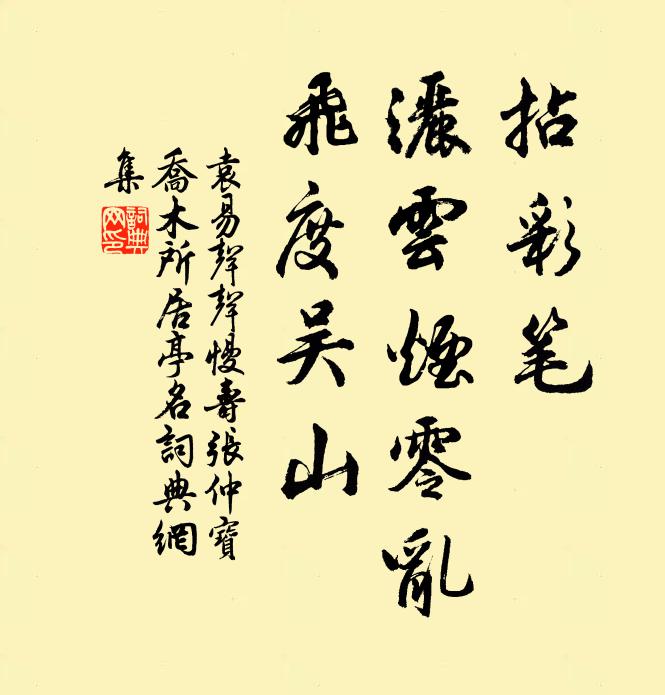 拈彩笔
灑雲煙零亂
飛度吴山
袁易聲聲慢壽張仲寶
喬木所居亭名詞典網
集
詞典
网印